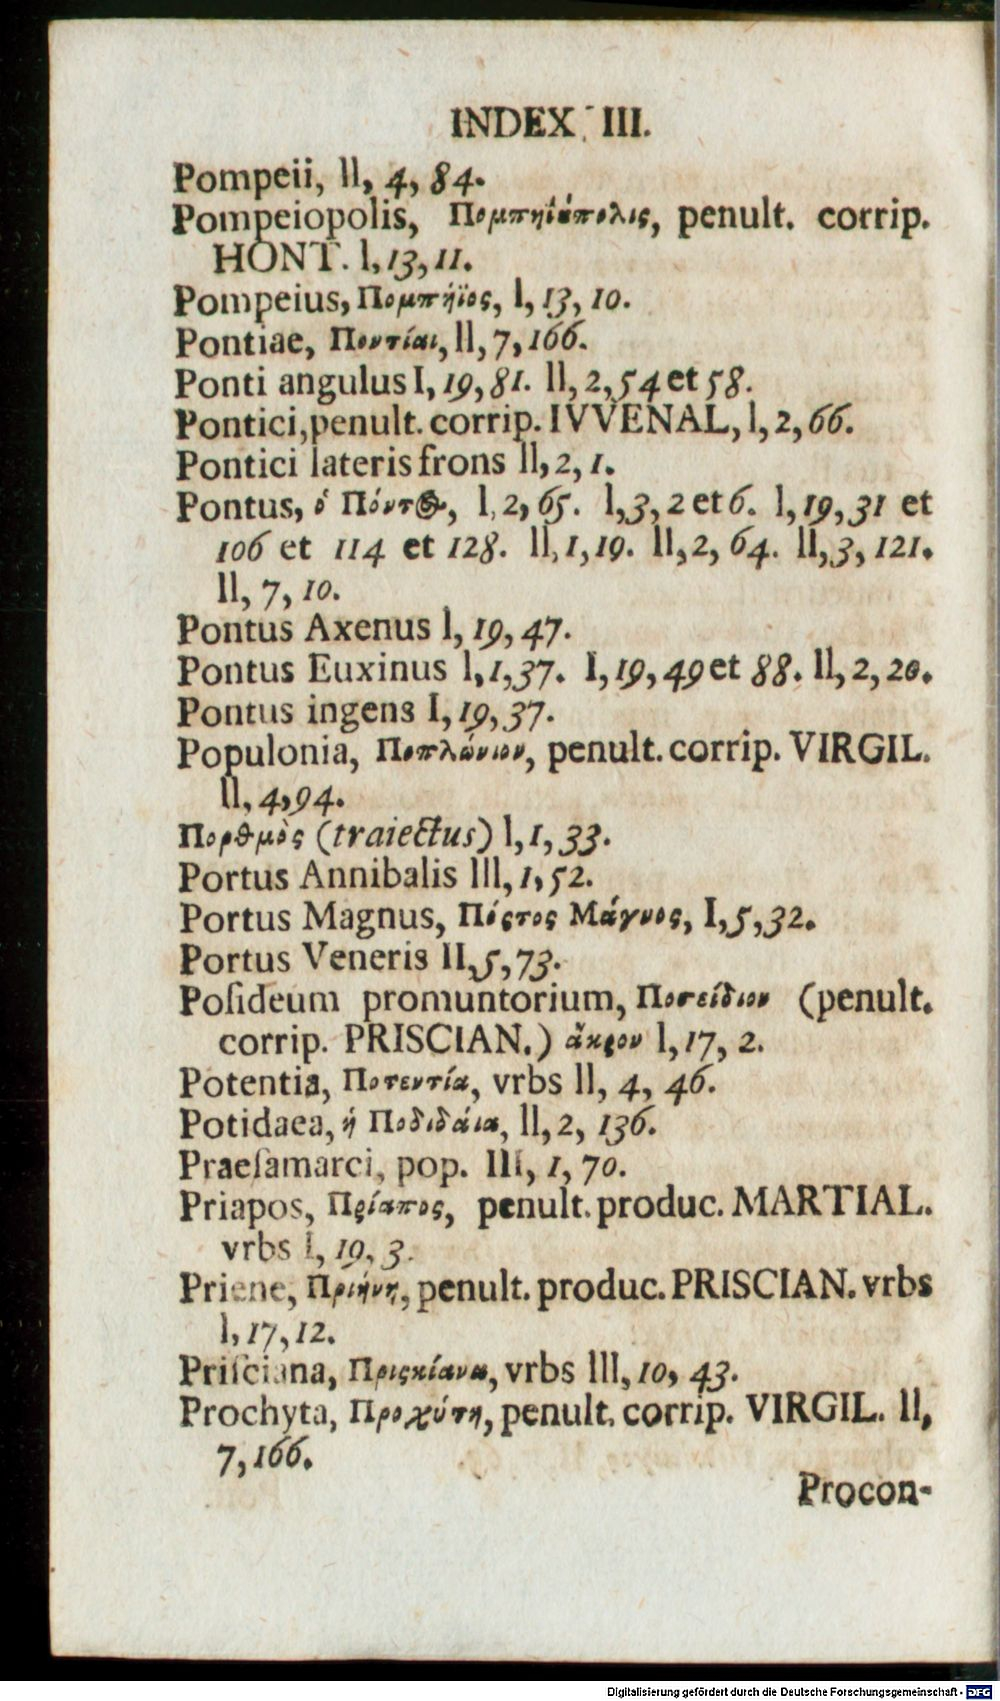 INDEX III.
Pompeii, II, 4, 84.
Pompeiopolis, Πομπηϊάπολις, penult. corrip.
HONT. I, 13, 11.
Pompeius, Πομπήϊος, I, 13, 10.
Pontiae, Ποντίαι, II, 7, 166.
Ponti angulus I, 19, 81. II, 2, 54 et 58.
Pontici, penult. corrip. IVVENAL, I, 2, 66.
Pontici lateris frons II, 2, 1.
Pontus, ὁ Πόντος, I, 2, 65. I, 3, 2 et 6. I, 19, 31 et
106 et 114 et 128. II, 1, 19. II, 2, 64. II, 3, 121.
II, 7, 10.
Pontus Axenus I, 19, 47.
Pontus Euxinus I, 1, 37. I, 19, 49 et 88. II, 2, 20.
Pontus ingens I, 19, 37.
Populonia, Ποπλώνιον, penult. corrip. VIRGIL.
II, 4, 94.
Πορθμὸς (traiectus) I, 1, 33.
Portus Annibalis III, 1, 52.
Portus Magnus, Πόρτος Μάγνος, I, 5, 32.
Portus Veneris II, 5, 73.
Poſideum promuntorium, Ποσείδιον (penult.
corrip. PRISCIAN.) ἄκρον I, 17, 2.
Potentia, Ποτεντία, vrbs II, 4, 46.
Potidaea, ἡ Ποδιδάια, II, 2, 136.
Praeſamarci, pop. III, 1, 70.
Priapos, Πρίαπος, penult. produc. MARTIAL.
vrbs I, 19, 3.
Priene, Πριήνη, penult. produc. PRISCIAN. vrbs
I, 17, 12.
Priſciana, Πρισκίανα, vrbs III, 10, 43.
Prochyta, Προχύτη, penult. corrip. VIRGIL. II,
7, 166.
Procon-
Digitalisierung gefördert durch die Deutsche Forschungsgemeinschaft - DFG